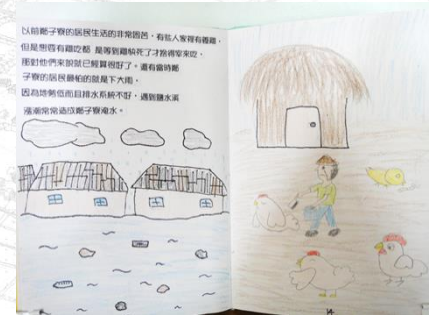 以前鄭子寮的居民生活的非常困苦，有些人家裡有養雞，
但是想要有雞吃都 是等到雞快死了才捨得宰來吃，
那對他們來說就已經算很好了。還有當時鄭
子寮的居民最怕的就是下大雨，
因為地勢低而且排水系統不好，遇到鹽水溪
漲潮常常造成鄭子寮淹水。
14